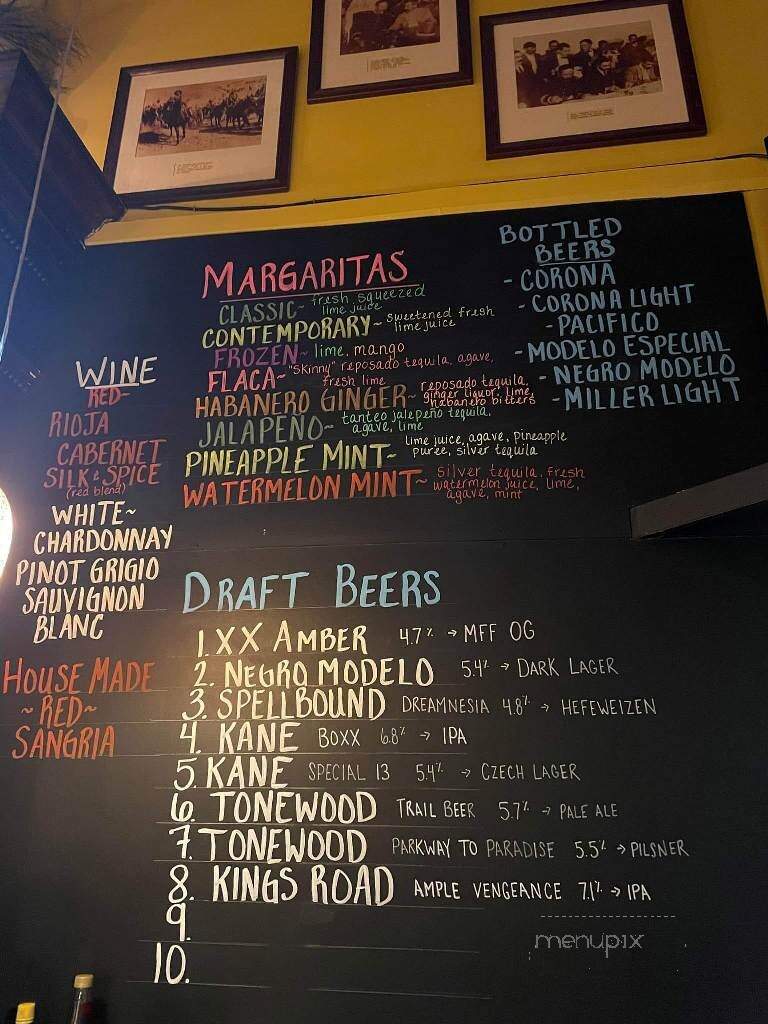 MARGARITAS
CLASSIC~ fresh squeezed
lime juice
CONTEMPORARY~ sweetened fresh
lime juice
FROZEN~ lime, mango
FLACA~ "Skinny" reposado tequila, agave,
fresh lime
HABANERO GINGER~ reposado tequila,
ginger liquor, lime,
habanero bitters
JALAPEÑO~ tanteo jalepeño tequila,
agave, lime
PINEAPPLE MINT~ lime juice, agave, pineapple
puree, silver tequila
WATERMELON MINT~ silver tequila, fresh
watermelon juice, lime,
agave, mint
BOTTLED
BEERS
- CORONA
- CORONA LIGHT
- PACIFICO
- MODELO ESPECIAL
- NEGRO MODELO
- MILLER LIGHT
WINE
RED~
RIOJA
CABERNET
SILK & SPICE
(red blend)
WHITE~
CHARDONNAY
PINOT GRIGIO
SAUVIGNON
BLANC
HOUSE MADE
~RED~
SANGRIA
DRAFT BEERS
1. XX AMBER 4.7% → MFF OG
2. NEGRO MODELO 5.4% → DARK LAGER
3. SPELLBOUND DREAMNESIA 4.8% → HEFEWEIZEN
4. KANE BOXX 6.8% → IPA
5. KANE SPECIAL 13 5.4% → CZECH LAGER
6. TONEWOOD TRAIL BEER 5.7% → PALE ALE
7. TONEWOOD PARKWAY TO PARADISE 5.5% → PILSNER
8. KINGS ROAD AMPLE VENGEANCE 7.1% → IPA
9.
10.
menupix